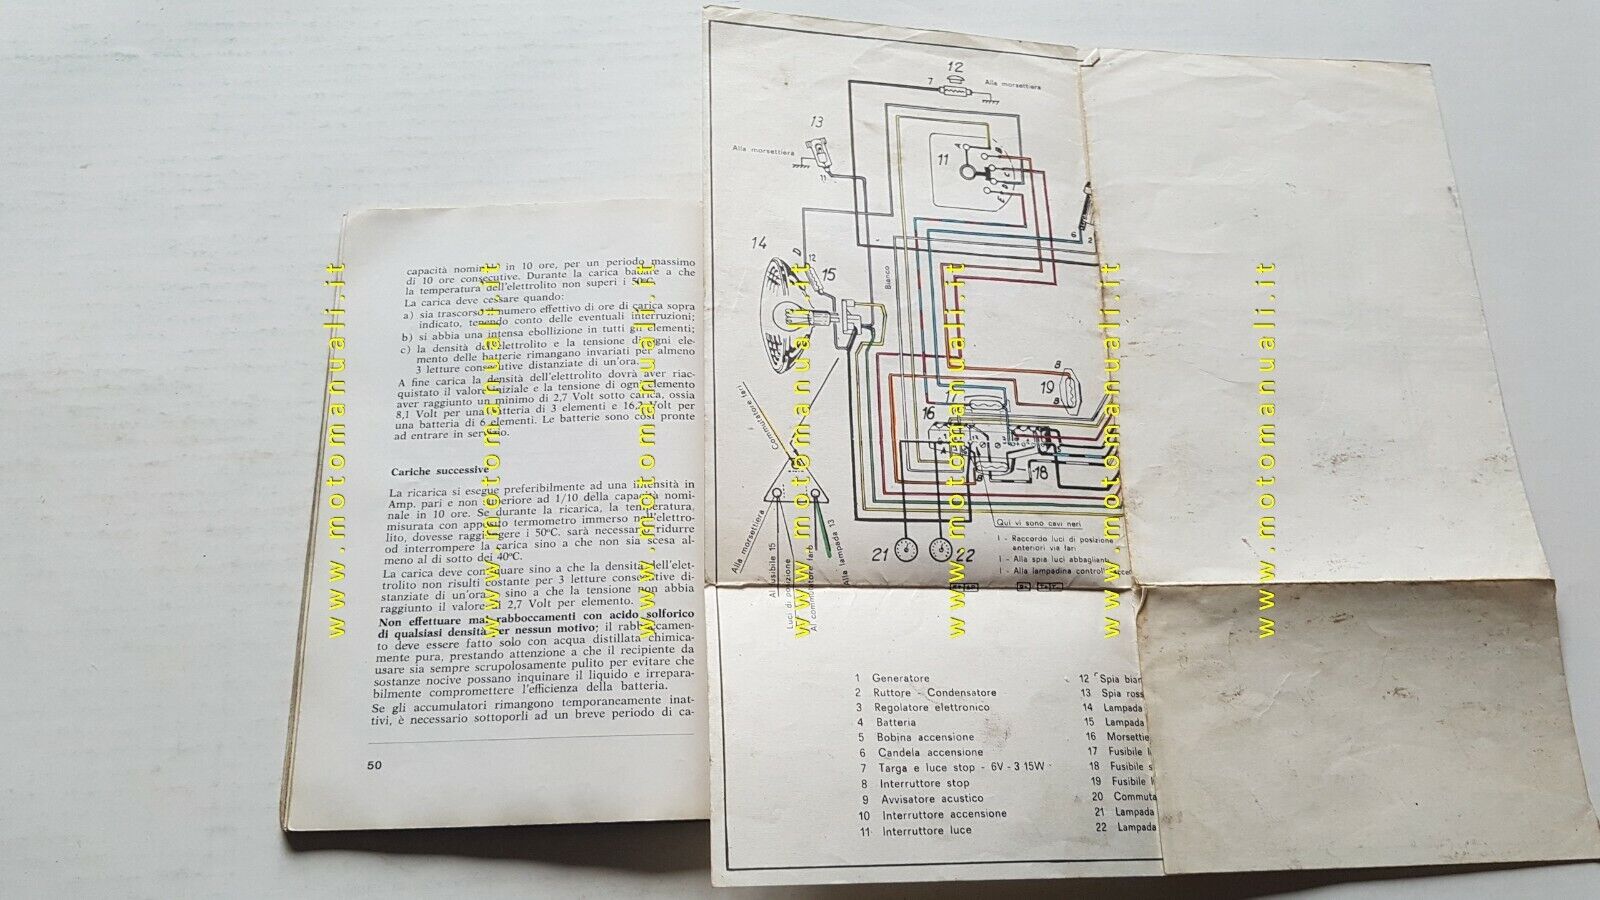 capacità nominale in 10 ore, per un periodo massimo
di 10 ore consecutive. Durante la carica badare a che
la temperatura dell'elettrolito non superi i 50°C.
La carica deve cessare quando:
a) sia trascorso il numero effettivo di ore di carica sopra
indicato, tenendo conto delle eventuali interruzioni;
b) si abbia una intensa ebollizione in tutti gli elementi;
c) la densità dell'elettrolito e la tensione di ogni ele-
mento delle batterie rimangano invariati per almeno
3 letture consecutive distanziate di un'ora.
A fine carica la densità dell'elettrolito dovrà aver riac-
quistato il valore iniziale e la tensione di ogni elemento
aver raggiunto un minimo di 2,7 Volt sotto carica, ossia
8,1 Volt per una batteria di 3 elementi e 16,2 Volt per
una batteria di 6 elementi. Le batterie sono così pronte
ad entrare in servizio.
Cariche successive
La ricarica si esegue preferibilmente ad una intensità in
Amp. pari e non superiore ad 1/10 della capacità nomi-
nale in 10 ore. Se durante la ricarica, la temperatura,
misurata con apposito termometro immerso nell'elettro-
lito, dovesse raggiungere i 50°C. sarà necessario ridurre
od interrompere la carica sino a che non sia scesa al-
meno al di sotto dei 40°C.
La carica deve continuare sino a che la densità dell'elet-
trolito non risulti costante per 3 letture consecutive di-
stanziate di un'ora e sino a che la tensione non abbia
raggiunto il valore di 2,7 Volt per elemento.
Non effettuare mai rabboccamenti con acido solforico
di qualsiasi densità per nessun motivo; il rabboccamen-
to deve essere fatto solo con acqua distillata chimica-
mente pura, prestando attenzione a che il recipiente da
usare sia sempre scrupolosamente pulito per evitare che
sostanze nocive possano inquinare il liquido e irrepara-
bilmente compromettere l'efficienza della batteria.
Se gli accumulatori rimangono temporaneamente inat-
tivi, è necessario sottoporli ad un breve periodo di ca-
50
12
7
Alla morsettiera
13
Alla morsettiera
11
11
A
B
C
D
E
6
2
14
D
12
15
Bianco
B
19
B
17
16
A
18
Commutatore fari
Qui vi sono cavi neri
I - Raccordo luci di posizione
anteriori via fari
I - Alla spia luci abbagliante
I - Alla lampadina controll
21
22
Alla morsettiera
Al fusibile 15
Luci di posizione
Al commutatore faro
Alla lampada 13
1 Generatore
2 Ruttore - Condensatore
3 Regolatore elettronico
4 Batteria
5 Bobina accensione
6 Candela accensione
7 Targa e luce stop - 6V - 3 15W
8 Interruttore stop
9 Avvisatore acustico
10 Interruttore accensione
11 Interruttore luce
12 Spia bian
13 Spia ross
14 Lampada
15 Lampada
16 Morsettie
17 Fusibile l
18 Fusibile s
19 Fusibile l
20 Commuta
21 Lampada
22 Lampada
www.motomanuali.it
www.motomanuali.it
www.motomanuali.it
www.motomanuali.it
www.motomanuali.it
www.motomanuali.it
www.motomanuali.it